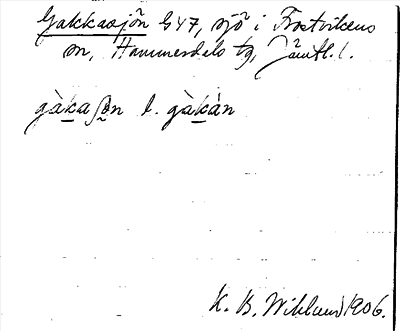 Gakkasjön G47, sjö i Frostvikens
sn, Hammerdals tg, Jämtl. l.
gàka̲ʃo̰n l. gàḵàn
K. B. Wiklund 1906.